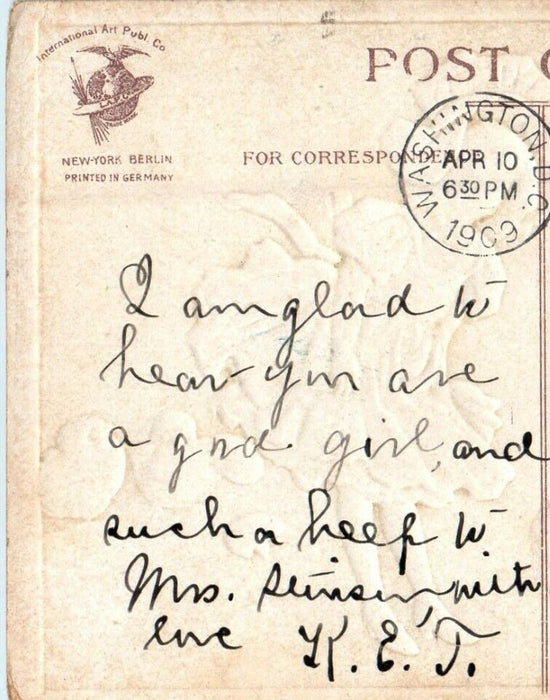 International Art Publ. Co
NEW-YORK BERLIN
PRINTED IN GERMANY
POST C
FOR CORRESPONDENCE
WASHINGTON, D.C.
APR 10
6 30 PM
1909
I am glad to
hear you are
a good girl, and
such a help to
Mrs. Stinson with
love K. E. T.